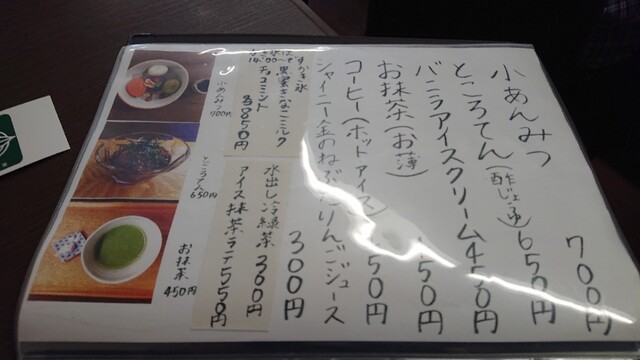 小あんみつ 700円
ところてん(酢じょうゆ) 650円
バニラアイスクリーム 450円
お抹茶(お薄) 450円
コーヒー(ホットアイス) 50円
シャイニー金のねぶたりんごジュース 300円
かき氷
黒蜜きなこミルク
チョコミント
各850円
水出し冷緑茶 300円
アイス抹茶ラテ 550円
小あんみつ
700円
ところてん
650円
お抹茶
450円